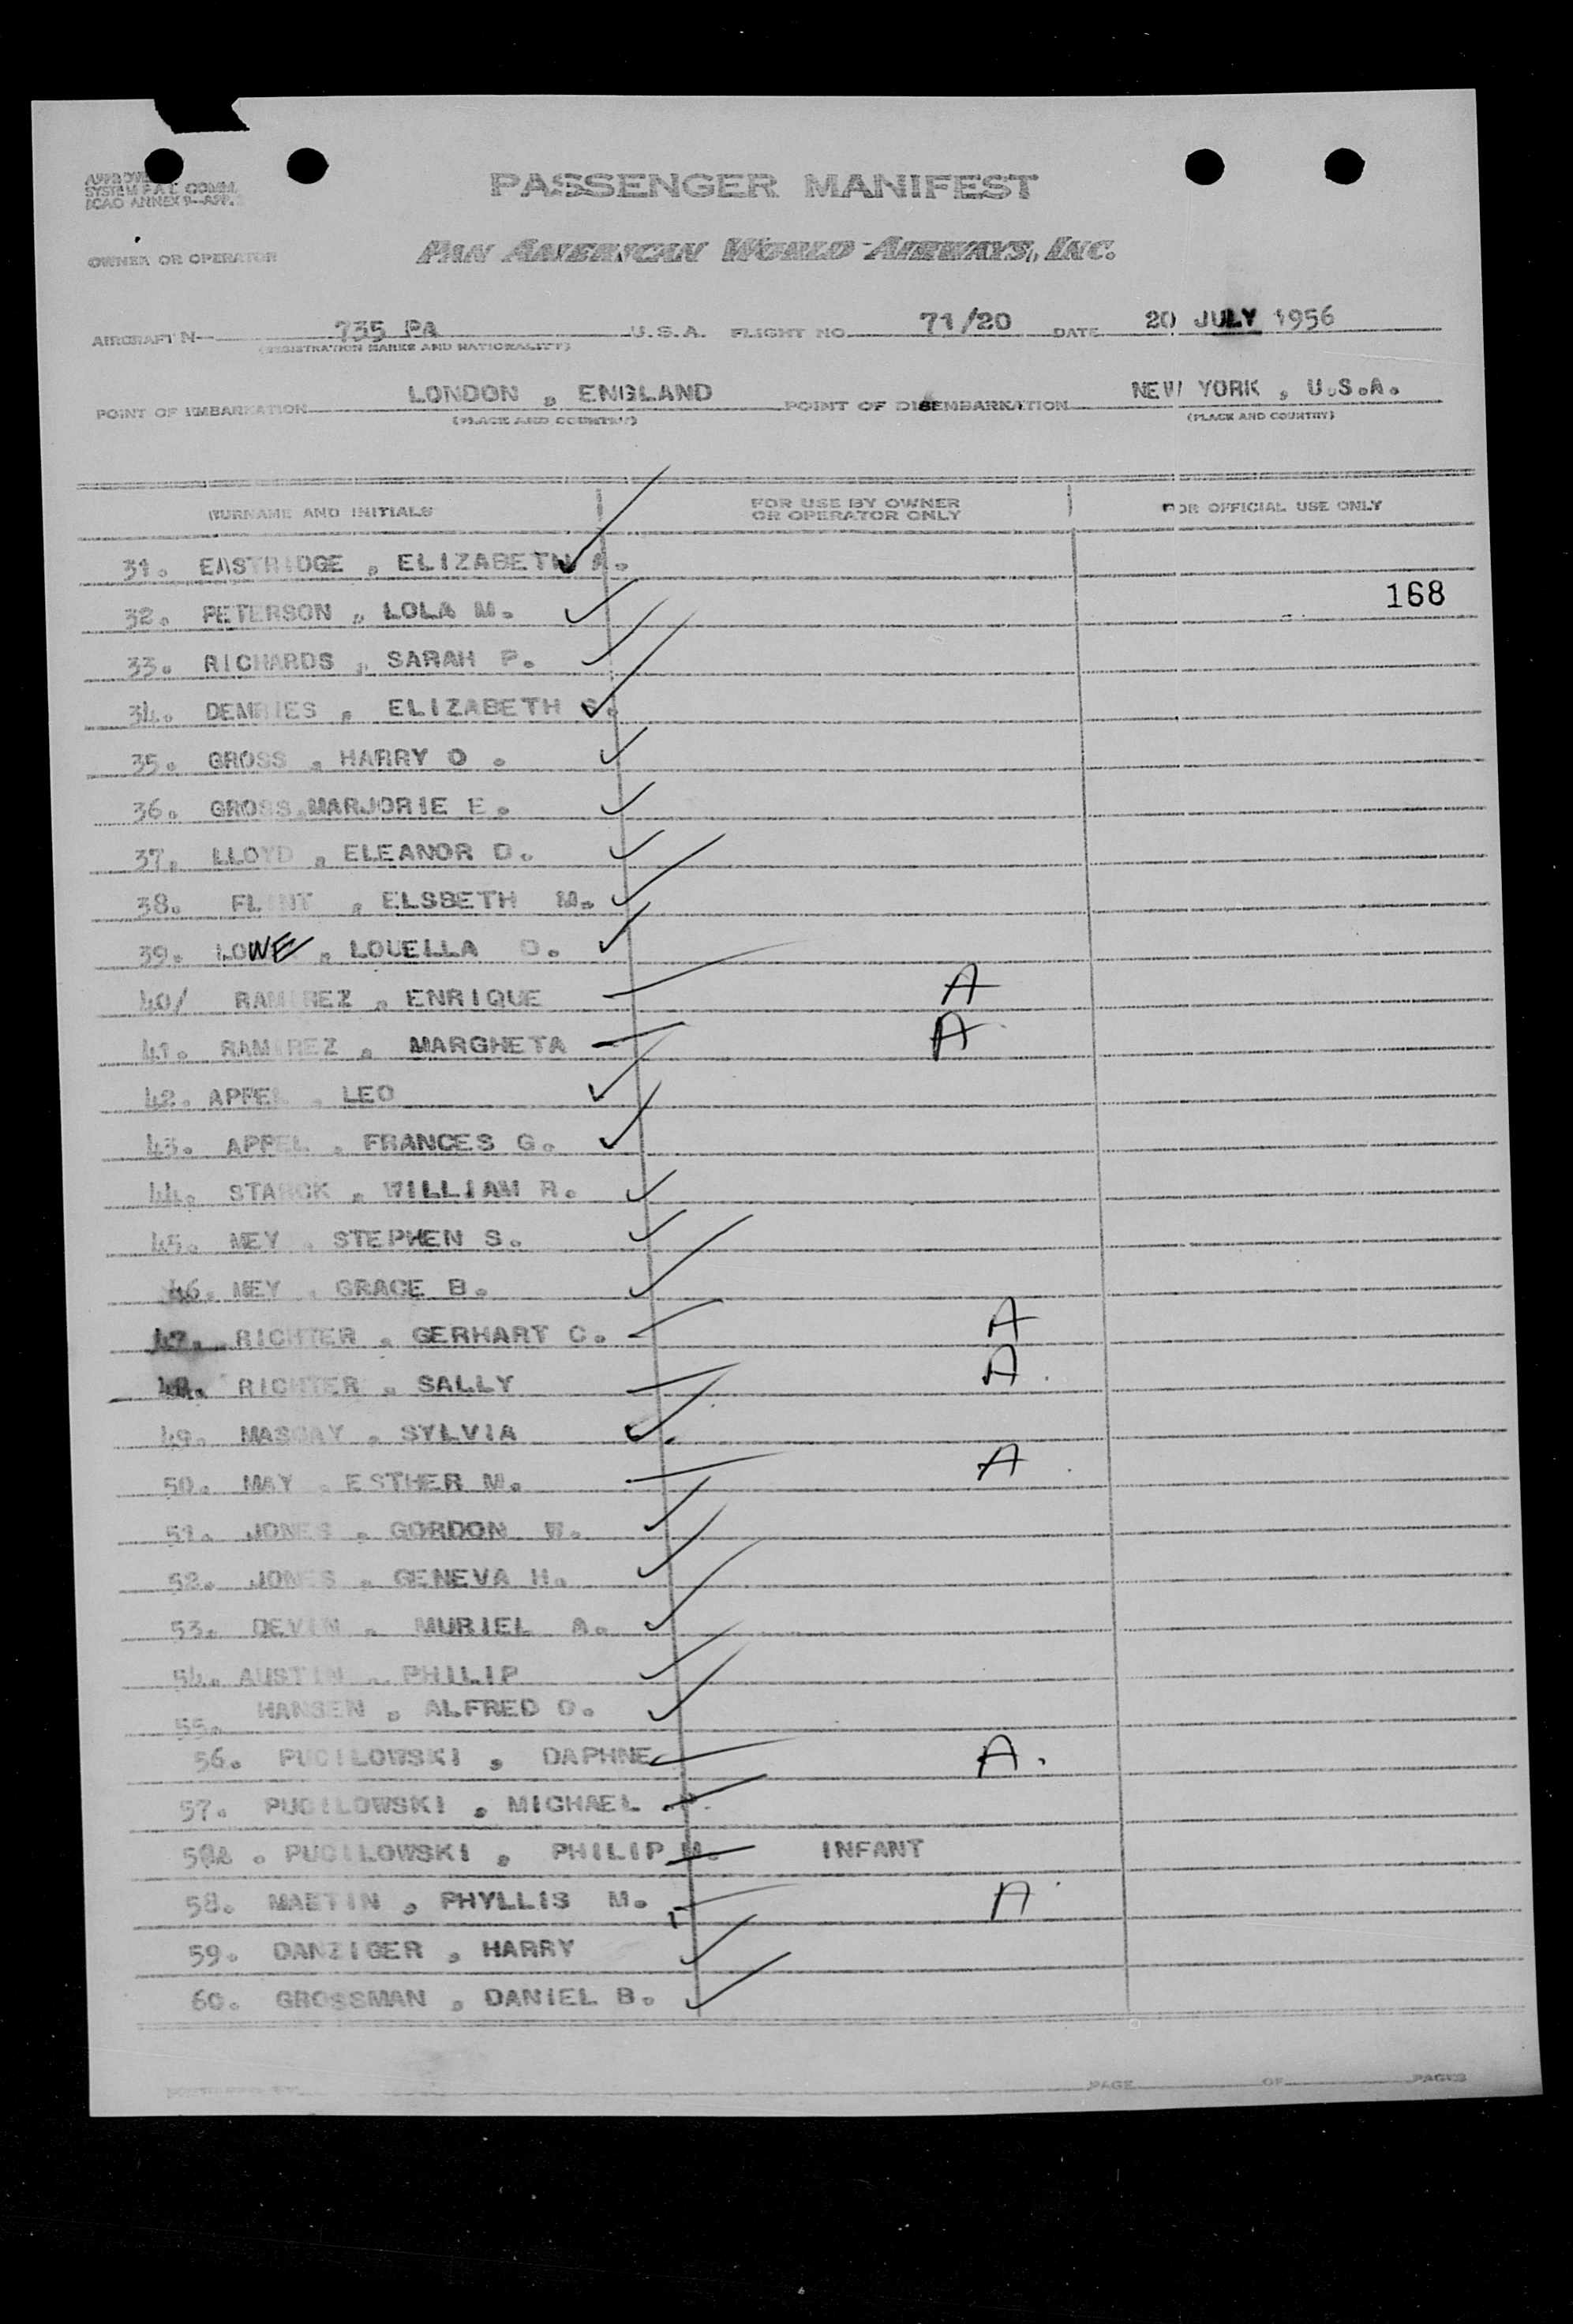 SYSTEM F.A.L. COMM.
ICAO ANNEX 9-APP.
PASSENGER MANIFEST
OWNER OR OPERATOR
PAN AMERICAN WORLD AIRWAYS, INC.
AIRCRAFT N 735 PA U.S.A. FLIGHT NO. 71/20 DATE 20 JULY 1956
(REGISTRATION MARKS AND NATIONALITY)
POINT OF EMBARKATION LONDON , ENGLAND POINT OF DISEMBARKATION NEW YORK , U.S.A.
(PLACE AND COUNTRY) (PLACE AND COUNTRY)
SURNAME AND INITIALS FOR USE BY OWNER OR OPERATOR ONLY FOR OFFICIAL USE ONLY
31. EASTRIDGE , ELIZABETH A.
168
32. PETERSON , LOLA M.
33. RICHARDS , SARAH P.
34. , ELIZABETH
35. GROSS , HARRY O .
36. GROSS,MARJORIE E.
37. LLOYD , ELEANOR D.
38. FLINT , ELSBETH M.
39. LOWE , LOUELLA D.
40/ RAMIREZ , ENRIQUE A
41. RAMIREZ , MARGHETA A
42. APPEL , LEO
43. APPEL , FRANCES G.
44. STARCK , WILLIAM R.
45. MEY , STEPHEN S.
46. MEY , GRACE B.
47. RICHTER , GERHART C. A
48. RICHTER , SALLY A
49. , SYLVIA
50. MAY , ESTHER M. A
51. JONES , GORDON W.
52. JONES , GENEVA H.
53. DEVIN , MURIEL A.
54. AUSTIN , PHILIP
55. HANSEN , ALFRED O.
56. PUCILOWSKI , DAPHNE A.
57. PUCILOWSKI , MICHAEL .P.
PUCILOWSKI , PHILIP M. INFANT
58. MARTIN , PHYLLIS M. A
59. DANZIGER , HARRY
60. GROSSMAN , DANIEL B.
PAGE OF PAGES